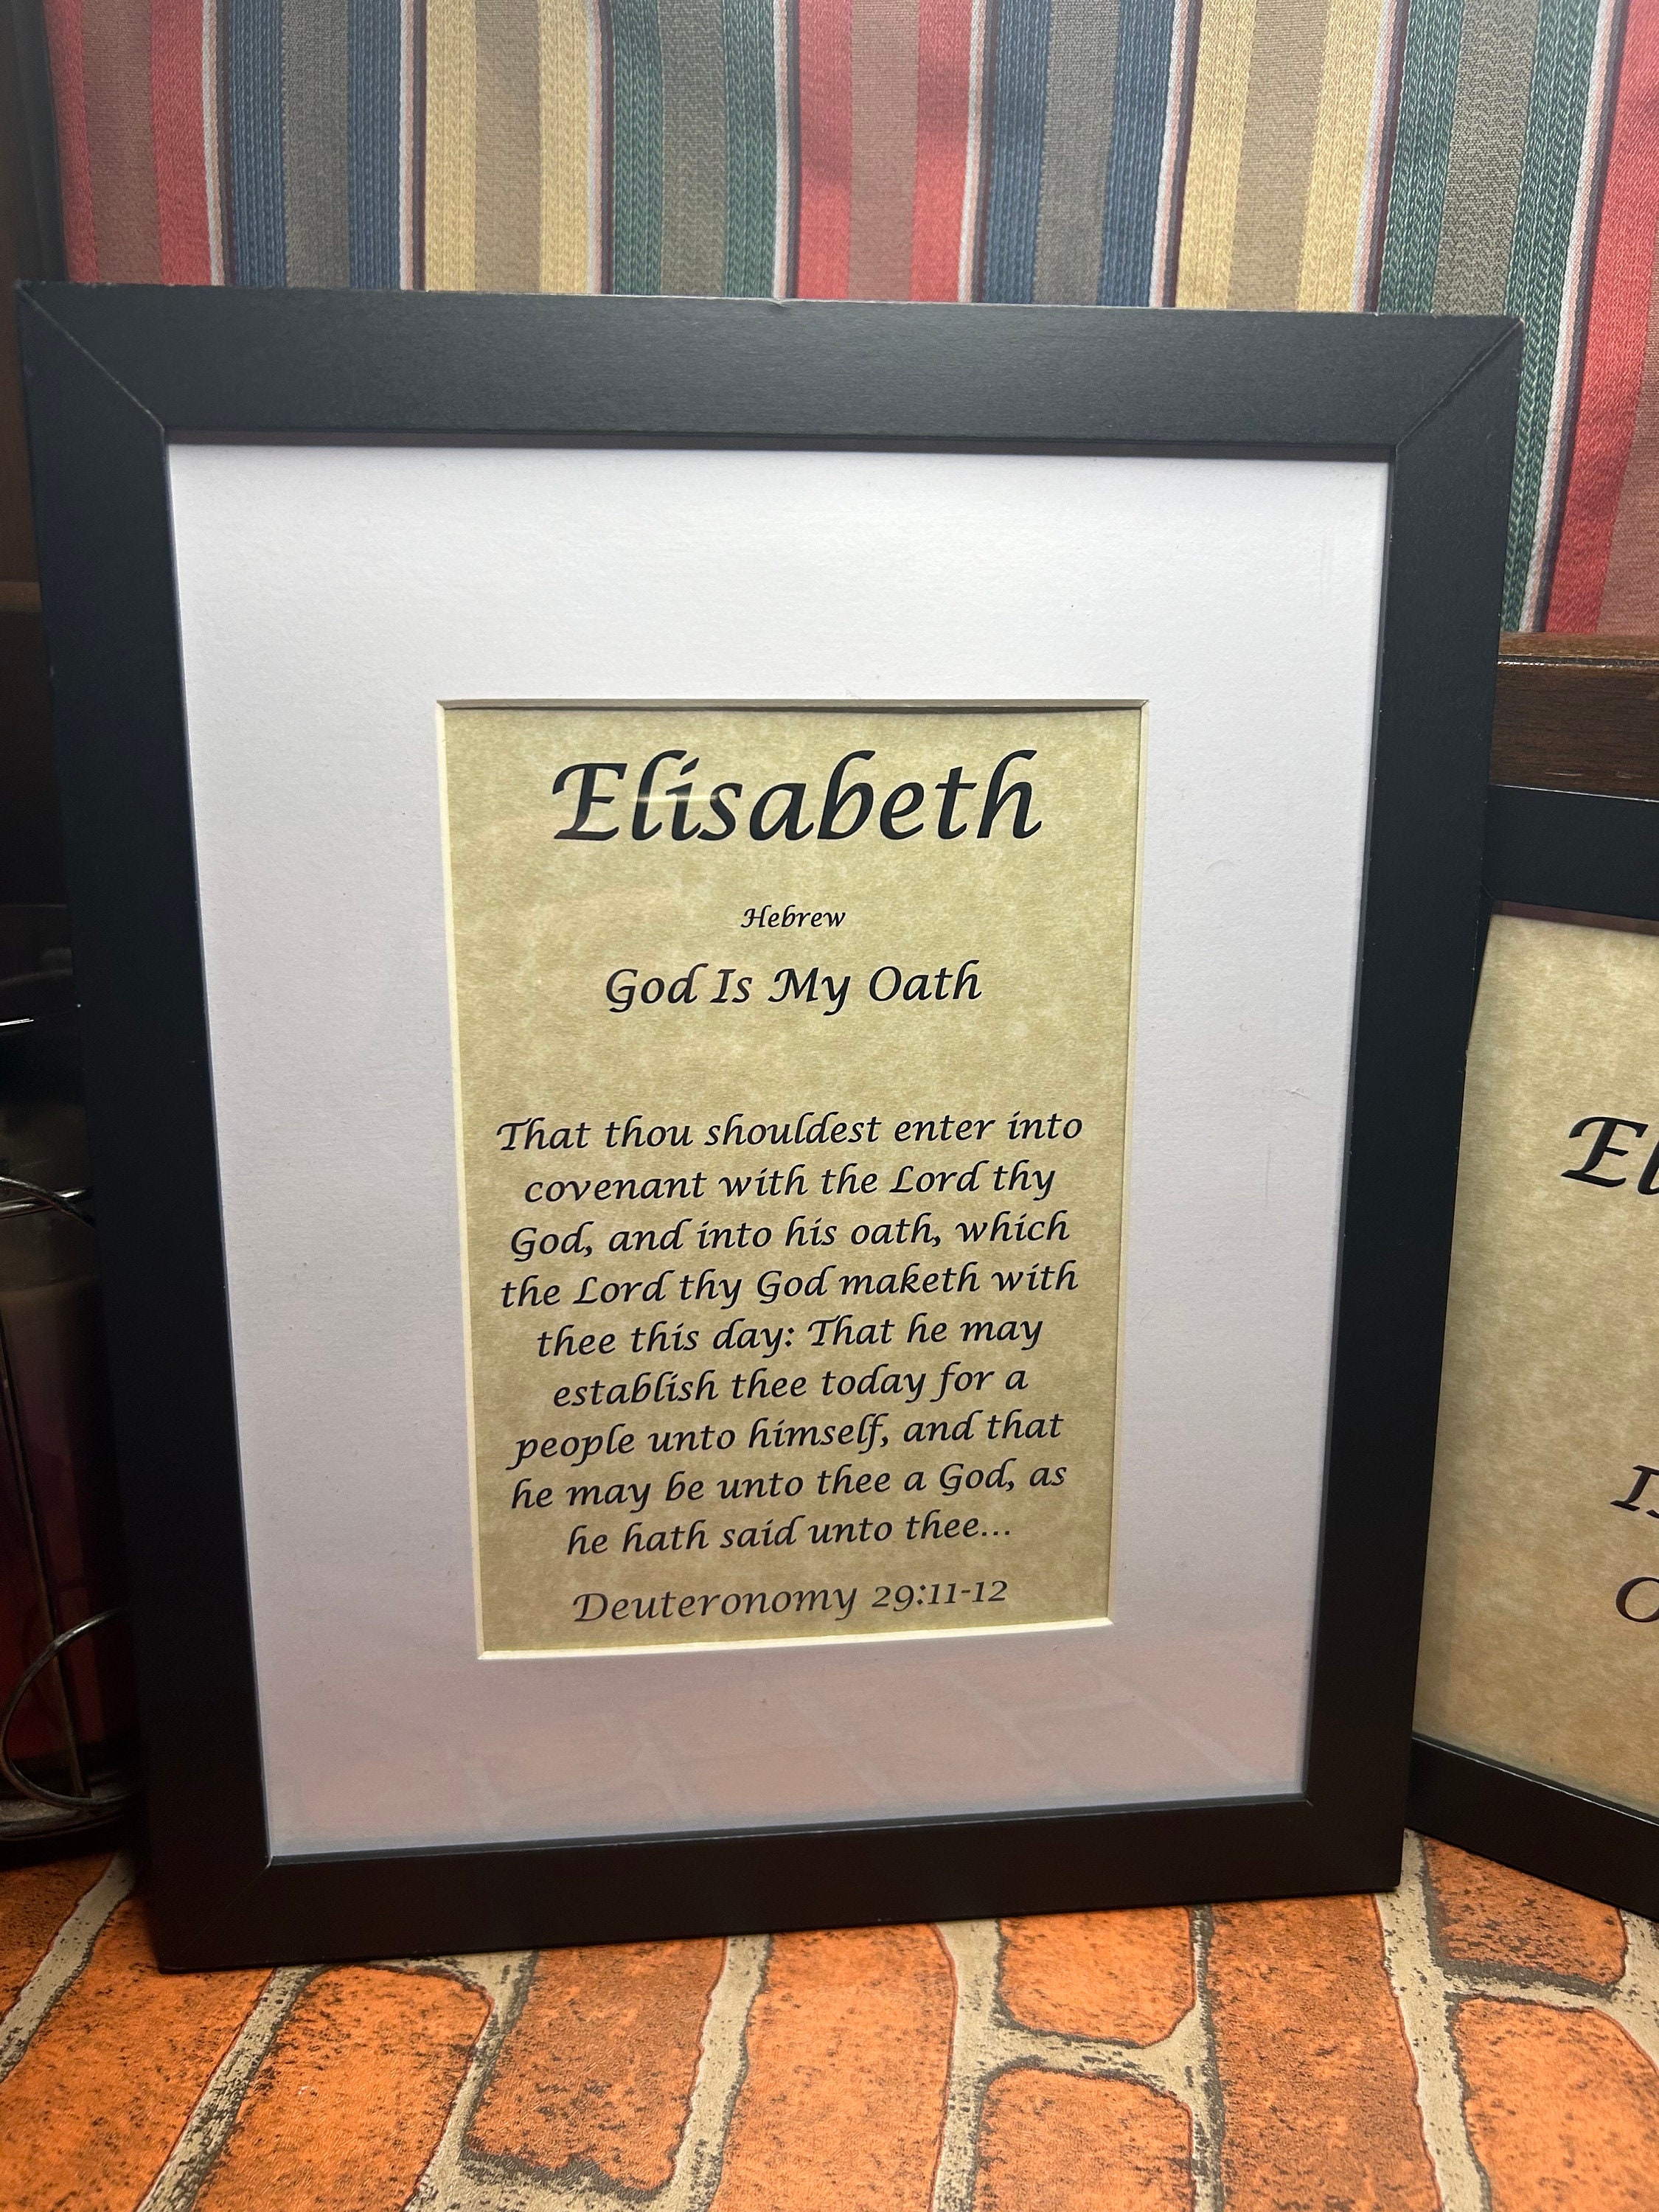 Elisabeth
Hebrew
God Is My Oath
That thou shouldest enter into
covenant with the Lord thy
God, and into his oath, which
the Lord thy God maketh with
thee this day: That he may
establish thee today for a
people unto himself, and that
he may be unto thee a God, as
he hath said unto thee...
Deuteronomy 29:11-12